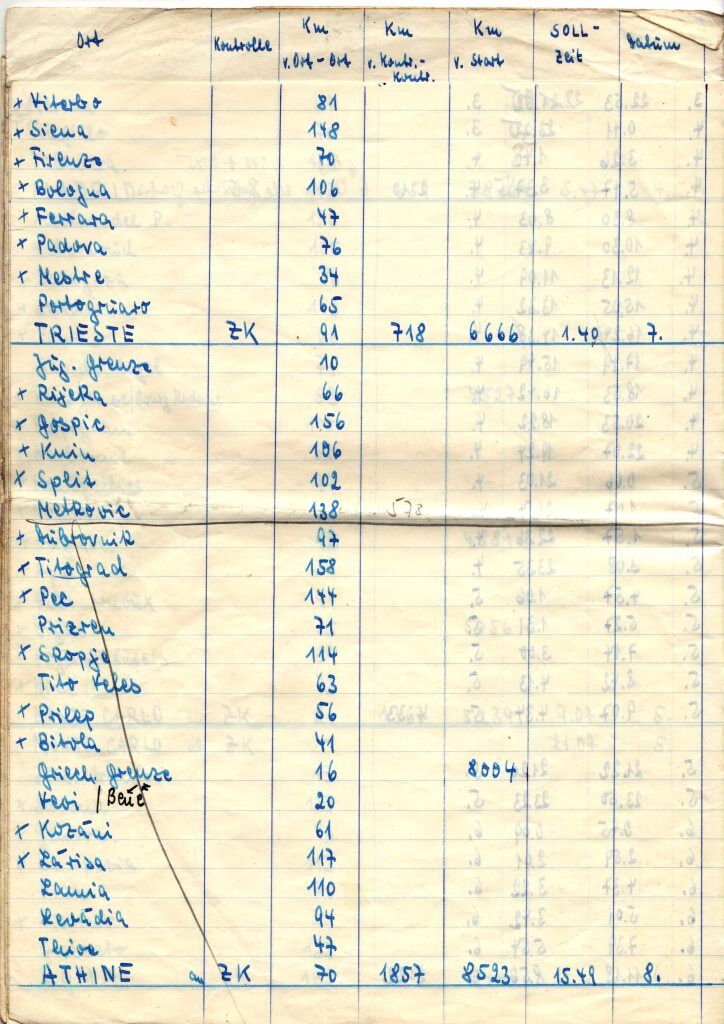 Ort Kontrolle Km v. Ort - Ort Km v. Kontr.- Kontr. Km v. Start SOLL- Zeit Datum
+ Viterbo 81
+ Siena 148
+ Firenze 70
+ Bologna 106
+ Ferrara 47
+ Padova 76
+ Mestre 34
Portogruaro 65
TRIESTE ZK 91 718 6666 1.40 7.
Jug. Grenze 10
+ Rijeka 66
+ Gospic 156
+ Knin 106
+ Split 102
Metkovic 138 578
+ Dubrovnik 97
+ Titograd 158
+ Pec 144
Prizren 71
+ Skopje 114
Tito Veles 63
+ Prilep 56
+ Bitola 41
Griech. Grenze 16 8004
Vevi / Beuë 20
+ Kozáni 61
+ Lárisa 117
Lamia 110
Levádia 94
Thive 47
ATHINE an ZK 70 1857 8523 15.49 8.